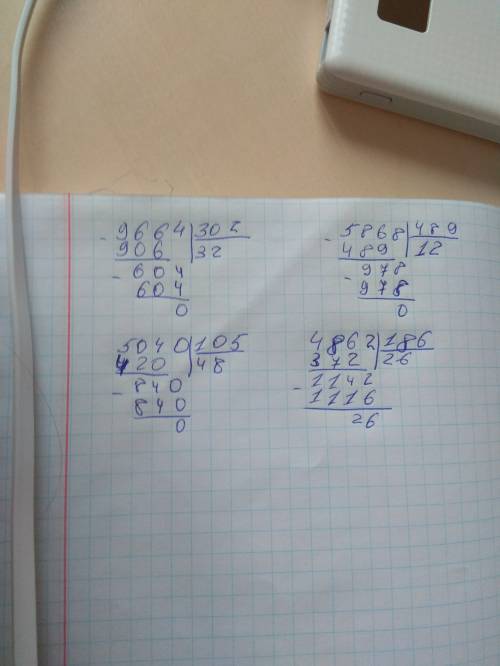 - 9664 | 302
906 | 32
- 604
604
0
- 5868 | 489
489 | 12
- 978
978
0
5040 | 105
420 | 48
- 840
840
0
4862 | 186
372 | 26
- 1142
1116
26